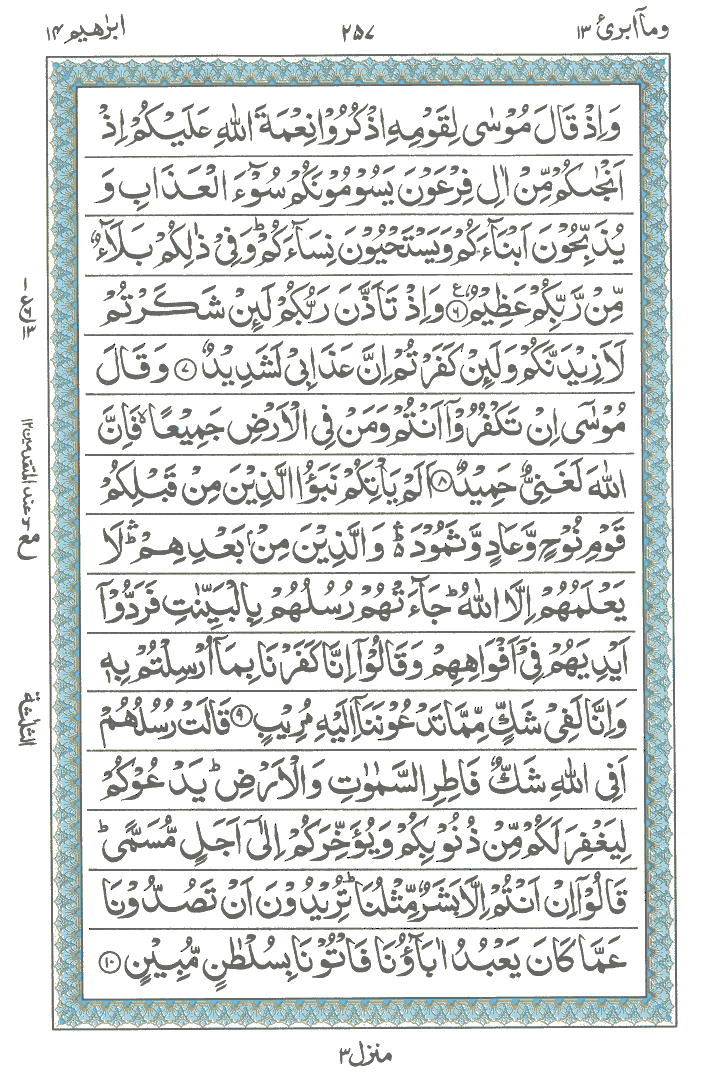 وماۤ ابرئ ۱۳
۲۵۷
ابرٰھیم ۱۴
وَاِذْ قَالَ مُوْسٰى لِقَوْمِهِ اذْكُرُوْا نِعْمَةَ اللّٰهِ عَلَيْكُمْ اِذْ
اَنْجٰىكُمْ مِّنْ اٰلِ فِرْعَوْنَ يَسُوْمُوْنَكُمْ سُوْٓءَ الْعَذَابِ وَ
يُذَبِّحُوْنَ اَبْنَآءَكُمْ وَيَسْتَحْيُوْنَ نِسَآءَكُمْ ؕ وَفِىْ ذٰلِكُمْ بَلَآءٌ
مِّنْ رَّبِّكُمْ عَظِيْمٌ ۶ وَاِذْ تَاَذَّنَ رَبُّكُمْ لَئِنْ شَكَرْتُمْ
لَاَزِيْدَنَّكُمْ وَلَئِنْ كَفَرْتُمْ اِنَّ عَذَابِىْ لَشَدِيْدٌ ۷ وَقَالَ
مُوْسٰٓى اِنْ تَكْفُرُوْٓا اَنْتُمْ وَمَنْ فِى الْاَرْضِ جَمِيْعًا ۙ فَاِنَّ
اللّٰهَ لَغَنِىٌّ حَمِيْدٌ ۸ اَلَمْ يَاْتِكُمْ نَبَؤُا الَّذِيْنَ مِنْ قَبْلِكُمْ
قَوْمِ نُوْحٍ وَّعَادٍ وَّثَمُوْدَ ۛ وَالَّذِيْنَ مِنْۢ بَعْدِهِمْ ۛؕ لَا
يَعْلَمُهُمْ اِلَّا اللّٰهُ ؕ جَآءَتْهُمْ رُسُلُهُمْ بِالْبَيِّنٰتِ فَرَدُّوْٓا
اَيْدِيَهُمْ فِىْٓ اَفْوَاهِهِمْ وَقَالُوْٓا اِنَّا كَفَرْنَا بِمَآ اُرْسِلْتُمْ بِهٖ
وَاِنَّا لَفِىْ شَكٍّ مِّمَّا تَدْعُوْنَنَآ اِلَيْهِ مُرِيْبٍ ۹ قَالَتْ رُسُلُهُمْ
اَفِى اللّٰهِ شَكٌّ فَاطِرِ السَّمٰوٰتِ وَالْاَرْضِ ؕ يَدْعُوْكُمْ
لِيَغْفِرَ لَكُمْ مِّنْ ذُنُوْبِكُمْ وَيُؤَخِّرَكُمْ اِلٰٓى اَجَلٍ مُّسَمًّى ؕ
قَالُوْٓا اِنْ اَنْتُمْ اِلَّا بَشَرٌ مِّثْلُنَا ؕ تُرِيْدُوْنَ اَنْ تَصُدُّوْنَا
عَمَّا كَانَ يَعْبُدُ اٰبَآؤُنَا فَاْتُوْنَا بِسُلْطٰنٍ مُّبِيْنٍ ۱۰
مع عند المتقدمین ۱۲
الثلثة
منزل ۳